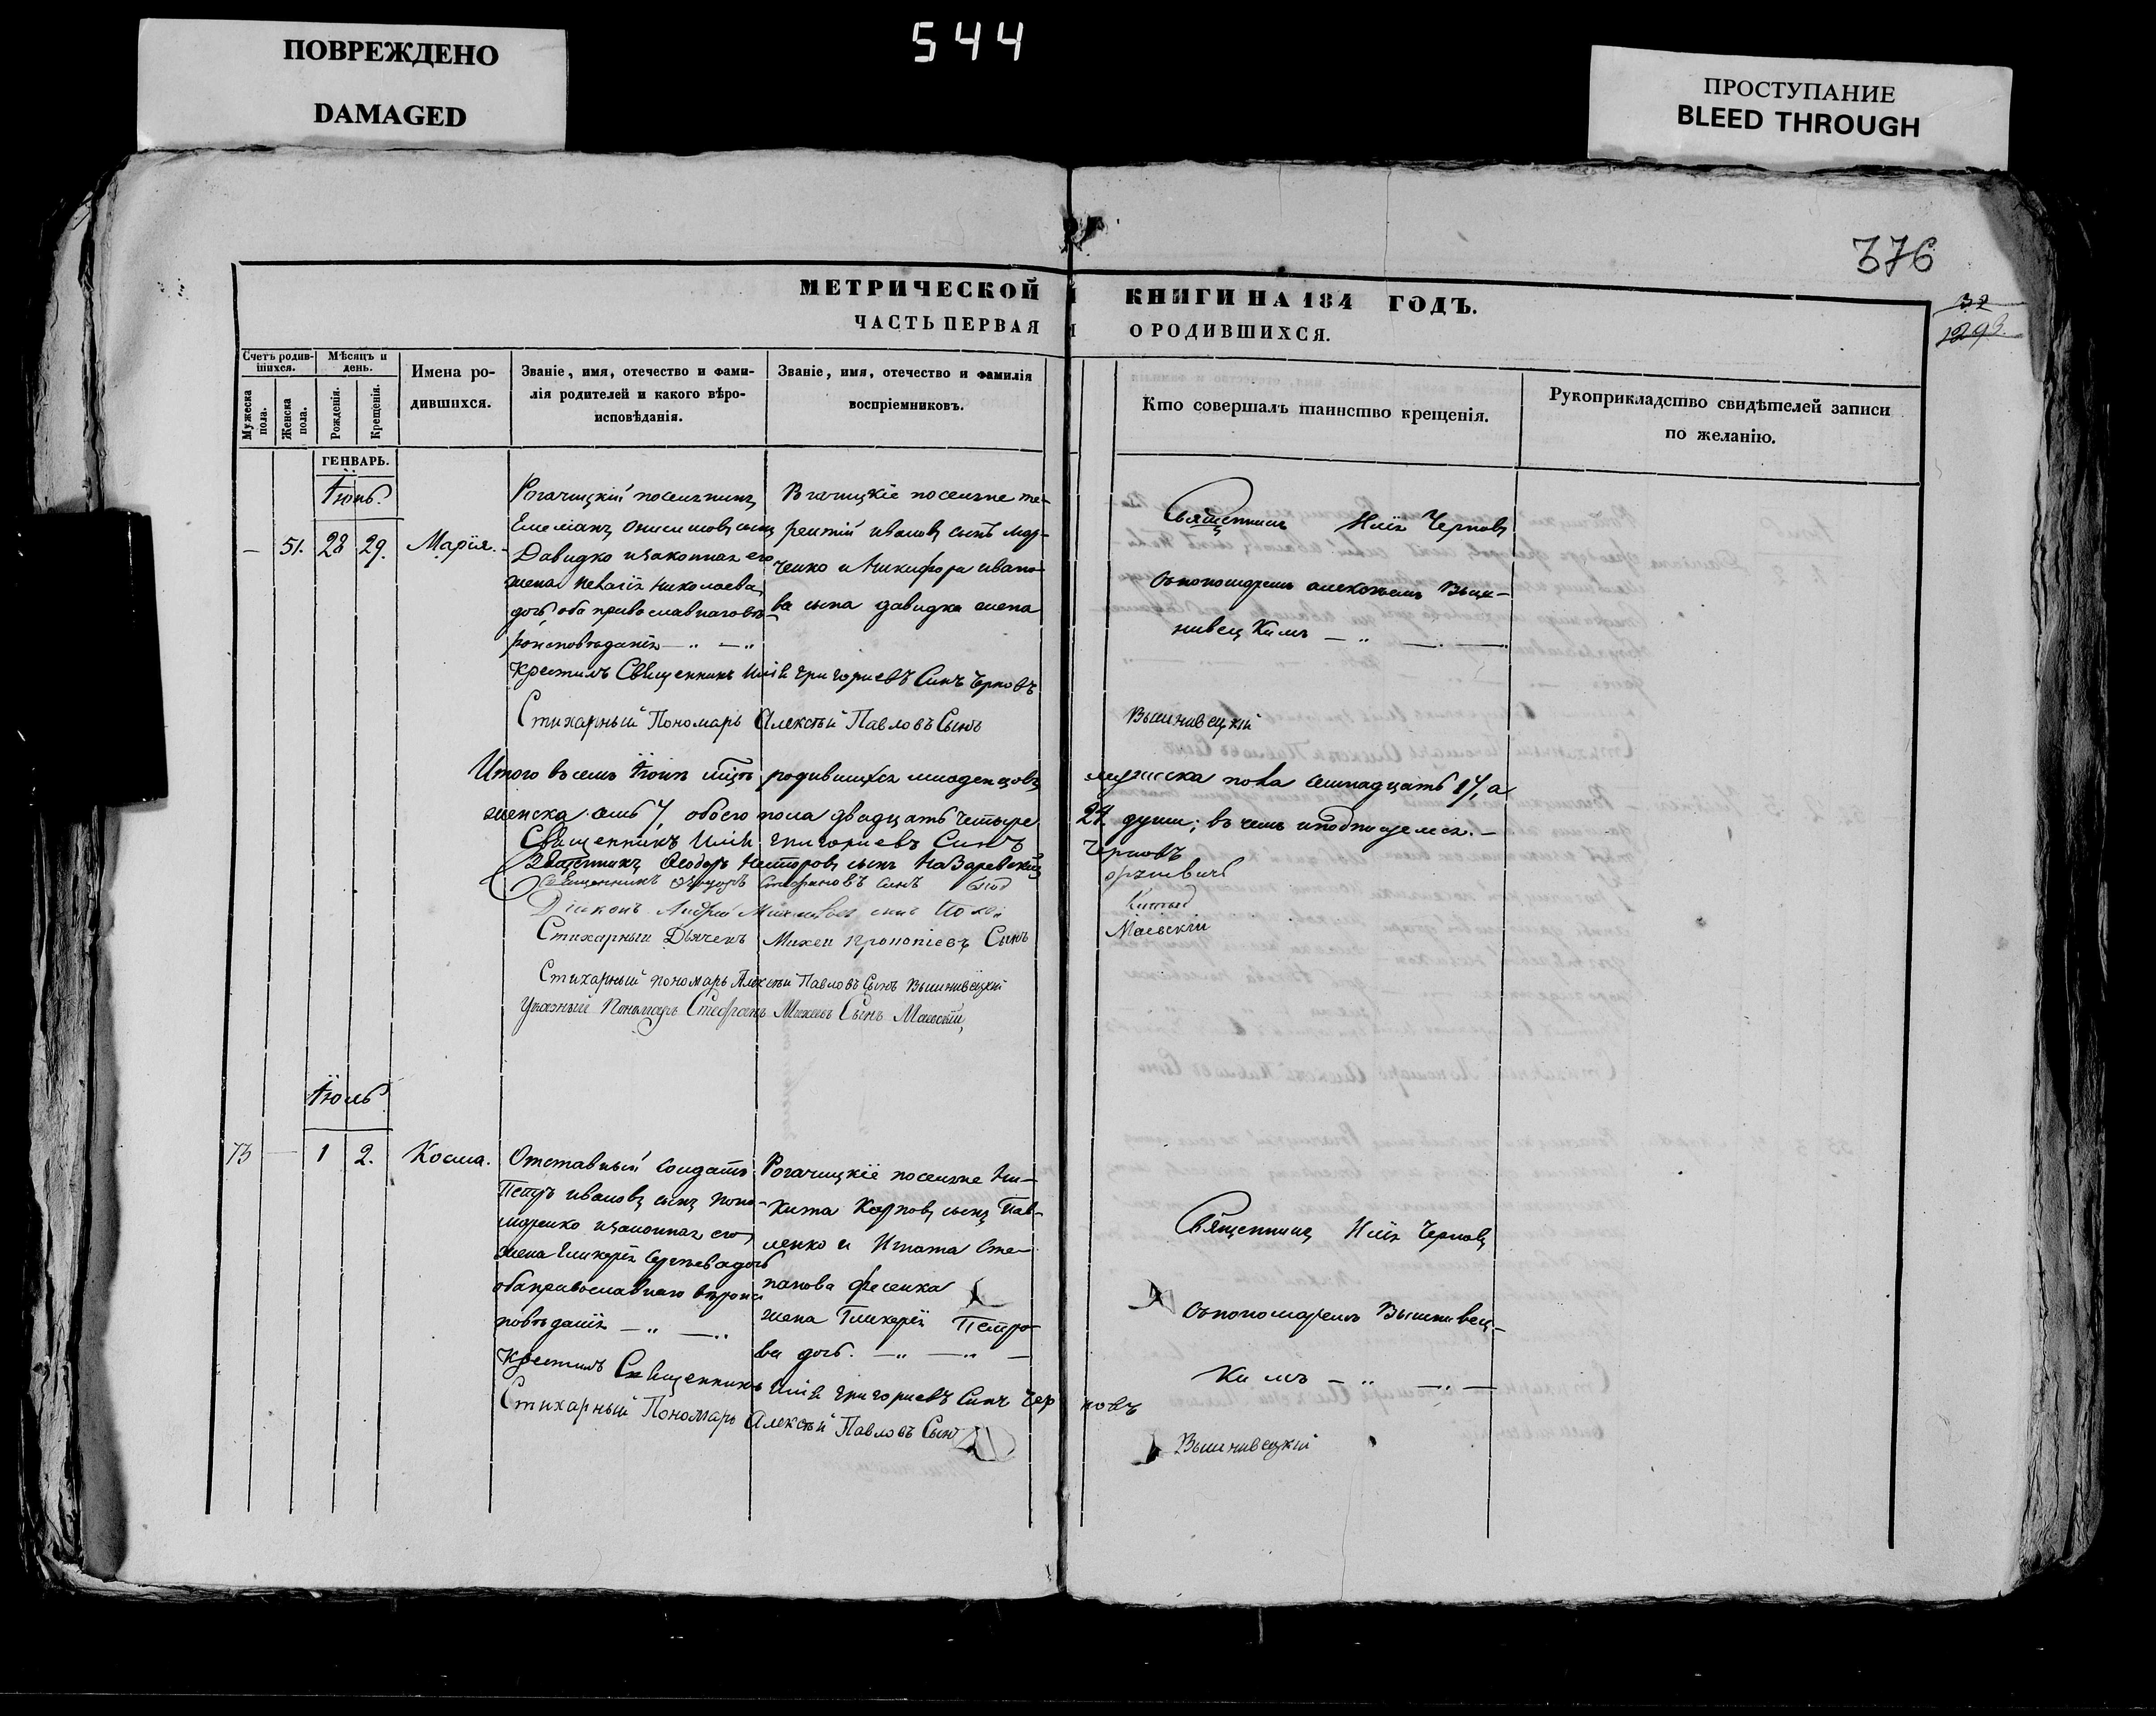 ПОВРЕЖДЕНО
DAMAGED
544
ПРОСТУПАНИЕ
BLEED THROUGH
376
32
1293.
МЕТРИЧЕСКОЙ КНИГИ НА 184 ГОДЪ.
ЧАСТЬ ПЕРВАЯ О РОДИВШИХСЯ.
Счетъ родив-
шихся.
Мужеска пола.
Женска пола.
Мѣсяцъ и
день.
Рожденія.
Крещенія.
Имена ро-
дившихся.
Званіе, имя, отечество и фами-
лія родителей и какого вѣро-
исповѣданія.
Званіе, имя, отечество и фамилія
воспріемниковъ.
Кто совершалъ таинство крещенія.
Рукоприкладство свидѣтелей записи
по желанію.
ГЕНВАРЬ.
Іюнь.
— 51. 28 29. Марія.
Рогачицкій поселянинъ
сынъ
Давидко и законная его
жена Пелагія Николаева
дочь, оба православнаго вѣ-
роисповѣданія — „ — „
поселяне Те-
рентій Ивановъ сынъ Мар-
ченко и Никифора Ивано-
ва сына Давидка жена
Священникъ Илія Черновъ
съ пономаремъ Алексѣемъ Выши-
нивецкимъ — „ — —
Крестилъ Священникъ Илія Григориевъ Синъ Черновъ
Стихарный Пономарь Алексѣй Павловъ Сынъ Вышнивецкій
Итого въ семъ Іюнѣ мцѣ родившихся младенцовъ мужеска пола семнадцать 17, а
женска семь 7, обоего пола двадцать четыре 24 души; въ чемъ и подписуемся. —
Священникъ Илій Григориевъ Синъ Черновъ
Священникъ Ѳеодоръ Несторовъ сынъ
Священникъ Стефановъ синъ
Діаконъ Андрей сынъ
Стихарный Дьячекъ Михей Прокопіевъ Сынъ Маевскій
Стихарный пономарь Алексѣй Павловъ Сынъ Вышнивецкій
Указный Пономарь Стефанъ Михеевъ Сынъ Маевскій,
Іюль
73 — 1 2. Косма.
Отставный Солдатъ
Петръ Ивановъ сынъ Поно-
маренко и законная его
жена Гликерія Сергѣева дочь
оба православнаго вѣроис
повѣданія — „ — „
Рогачицкіе поселяне Ни-
кита Карповъ сынъ Пав-
ленко и Игната Сте-
панова Фесенка
жена Гликерія Петро-
ва дочь. — „ — „ —
Священникъ Илія Черновъ
съ пономаремъ Вышнивец-
кимъ — „ — „ —
Крестилъ Священникъ Илій Григориевъ Синъ Черновъ
Стихарный Пономарь Алексѣй Павловъ Сынъ Вышнивецкій